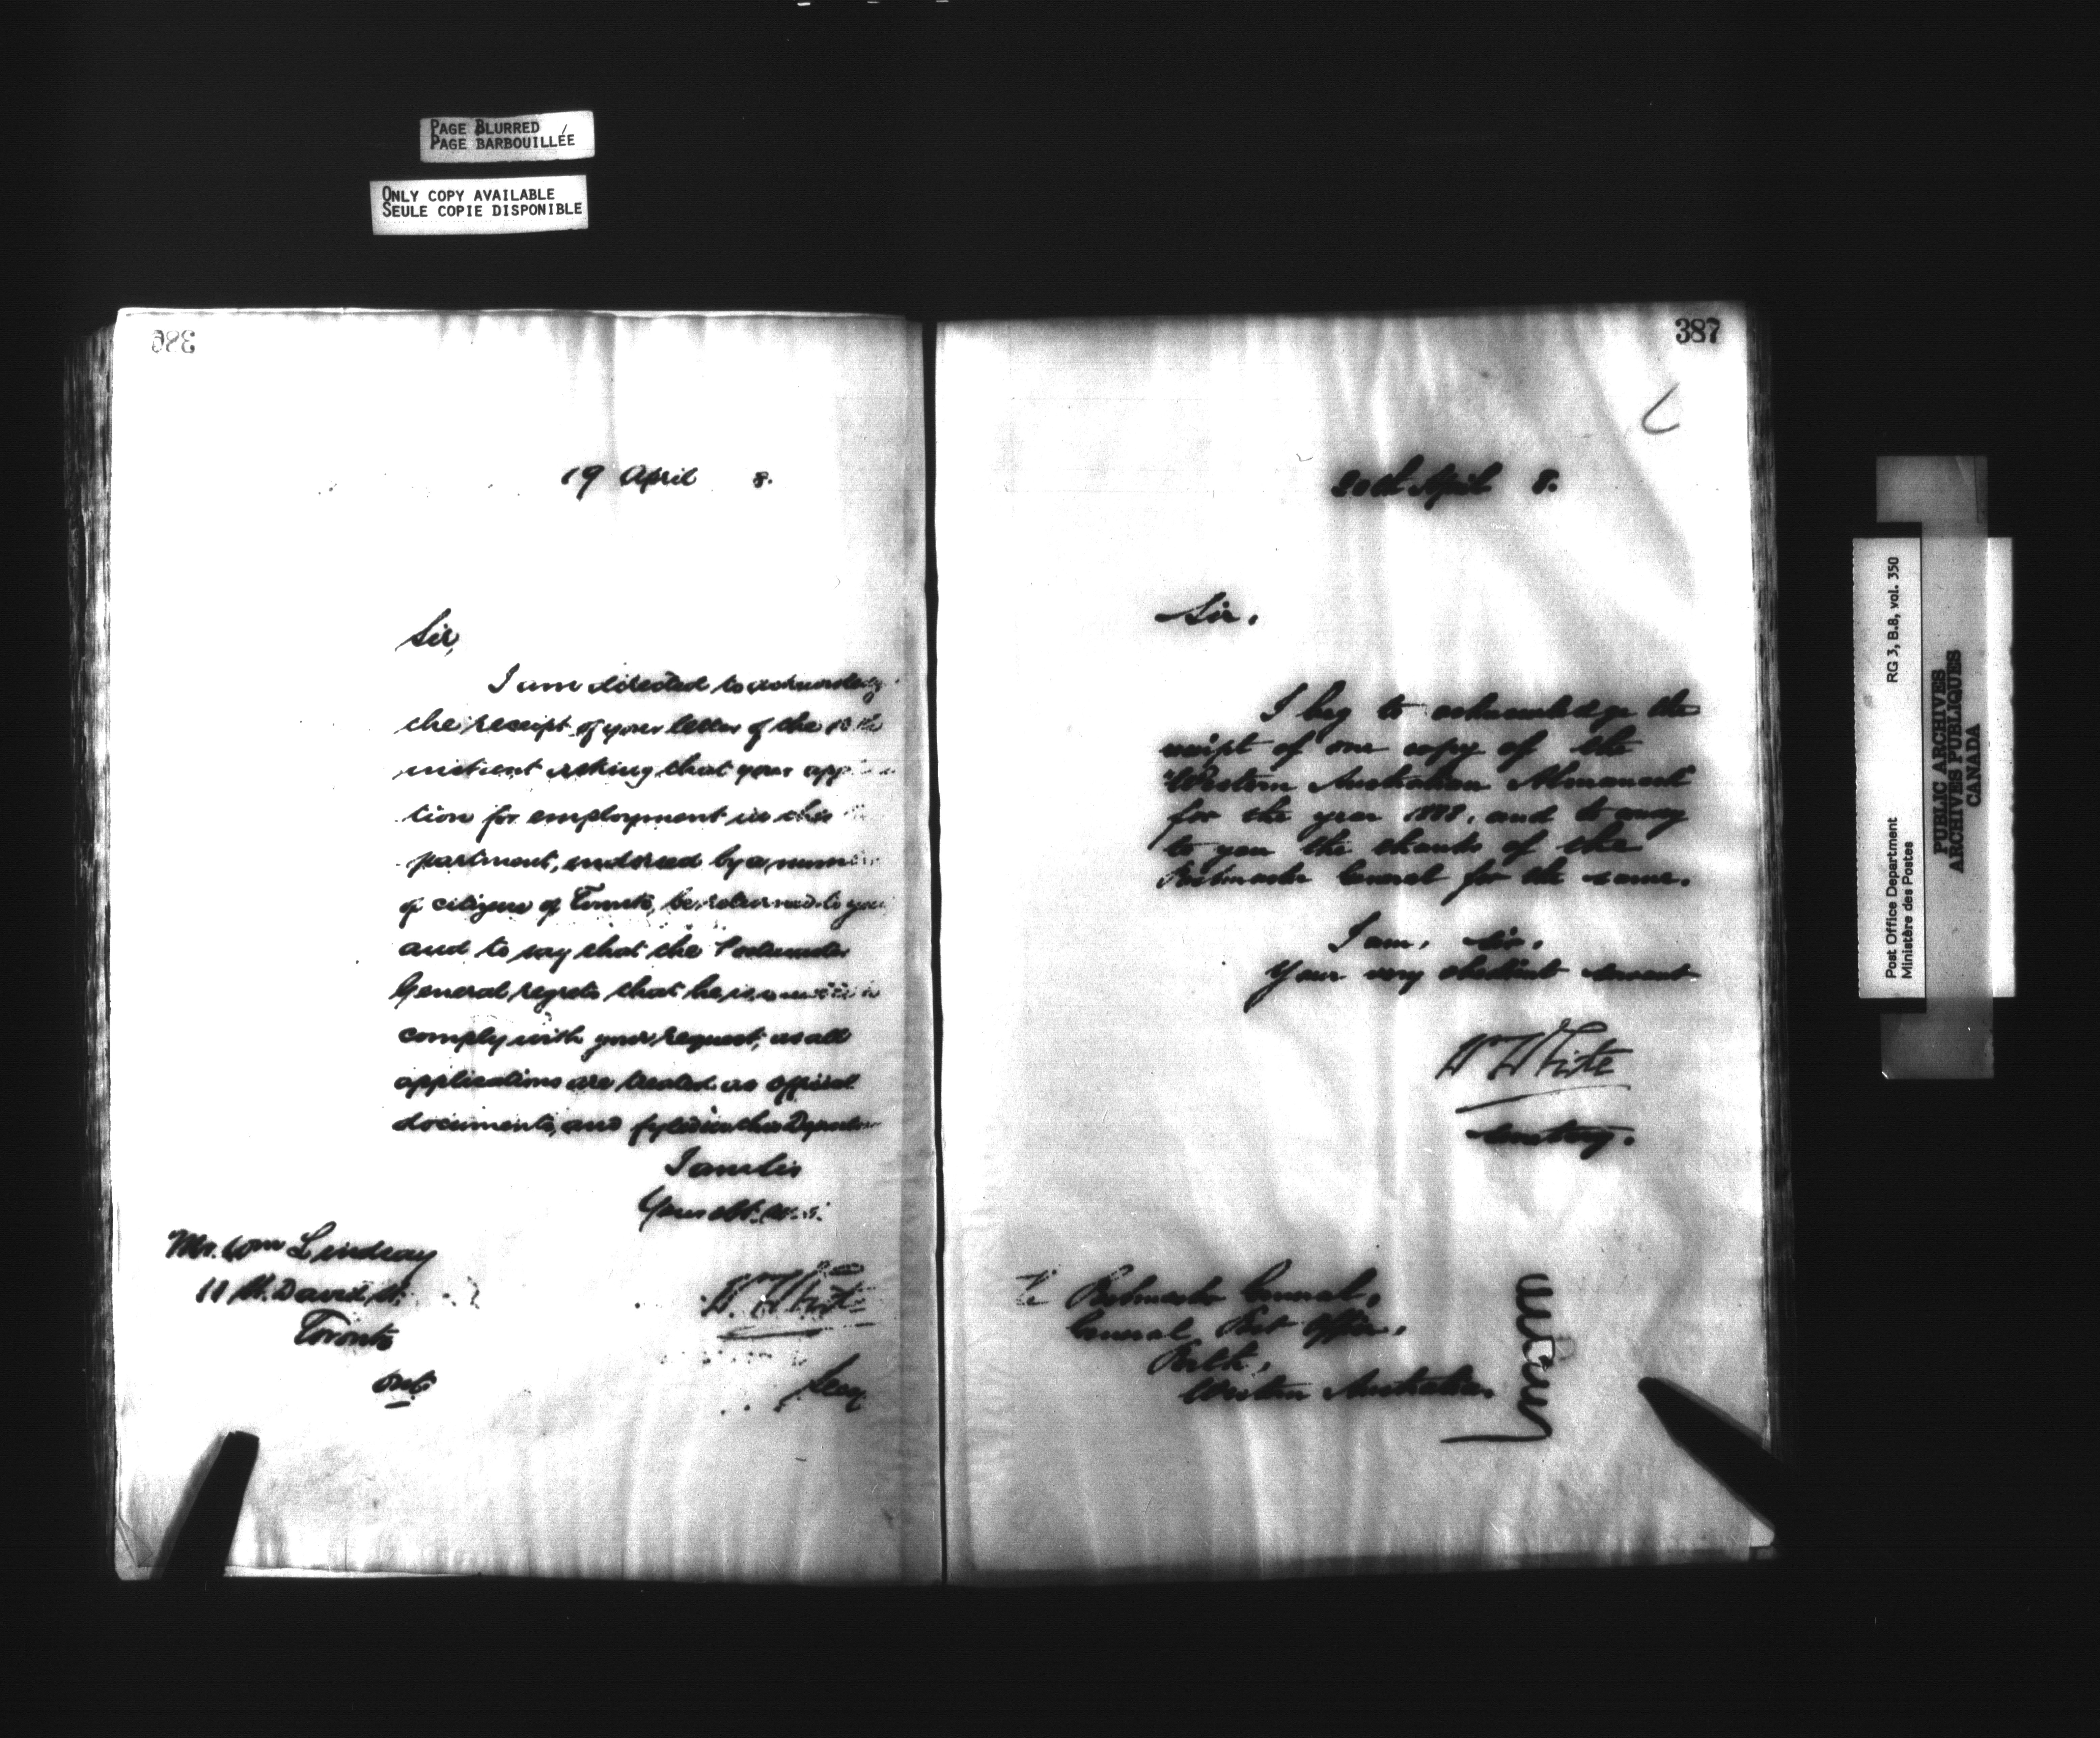 PAGE BLURRED
PAGE BARBOUILLÉE
ONLY COPY AVAILABLE
SEULE COPIE DISPONIBLE
386
19 April 8.
Sir,
I am directed to acknowledge
the receipt of your letter of the
instant asking that your
tion for employment in this
partment, endorsed by a
of citizens of Toronto, be returned to you
and to say that the Postmaster
General regrets that he is
comply with your request, as all
applications are treated as official
documents, and fyled in this
I am Sir
Your obt.
Mr. Wm Lindsay
11 St. David St.
Toronto
Ont.
W White
Secy
387
20th April 8.
Sir.
I beg to acknowledge the
receipt of one copy of the
"Western Australian Almanack"
for the year 1888, and to convey
to you the thanks of the
Postmaster General for the same.
I am, Sir,
Your very obedient servant
W White
Secretary.
The Postmaster General,
General Post Office,
Perth,
Western Australia.
Post Office Department RG 3, B.8, vol. 350
Ministère des Postes
PUBLIC ARCHIVES
ARCHIVES PUBLIQUES
CANADA